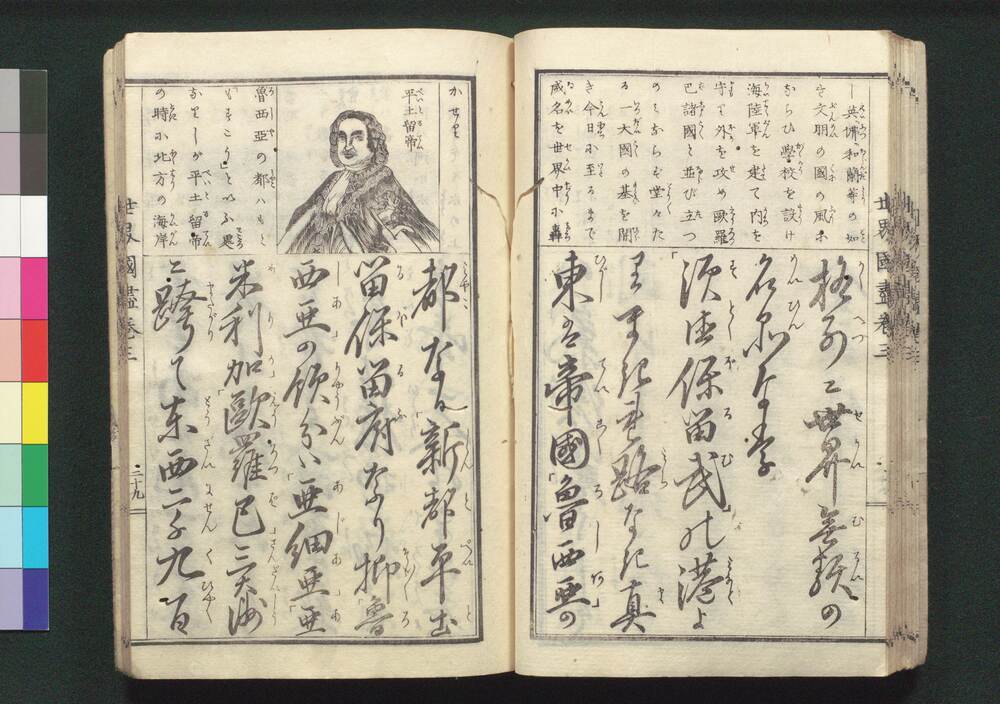 世界國盡卷三
し英佛和蘭等の如
き文明の國の風に
ならひ學校を設け
海陸軍を建て内を
守り外を攻め歐羅
巴諸國と並び立つ
のみならず堂々た
る一大國の基を開
き今日に至るまで
威名を世界中に轟
格別に世界無類の
名品なり
須德保留武の港よ
路 真
東は帝國「魯西亜」の
かせり
平土留帝
魯西亜の都ハもと
「もすこう」といふ處
なりしが平土留帝
の時に北方の海岸
都なる新都平土
留保留府なり抑「魯
西亜」の領分ハ「亜細亜」「亜
米利加」「歐羅巴」三大洲
に跨て東西二千九百
世界國盡卷三